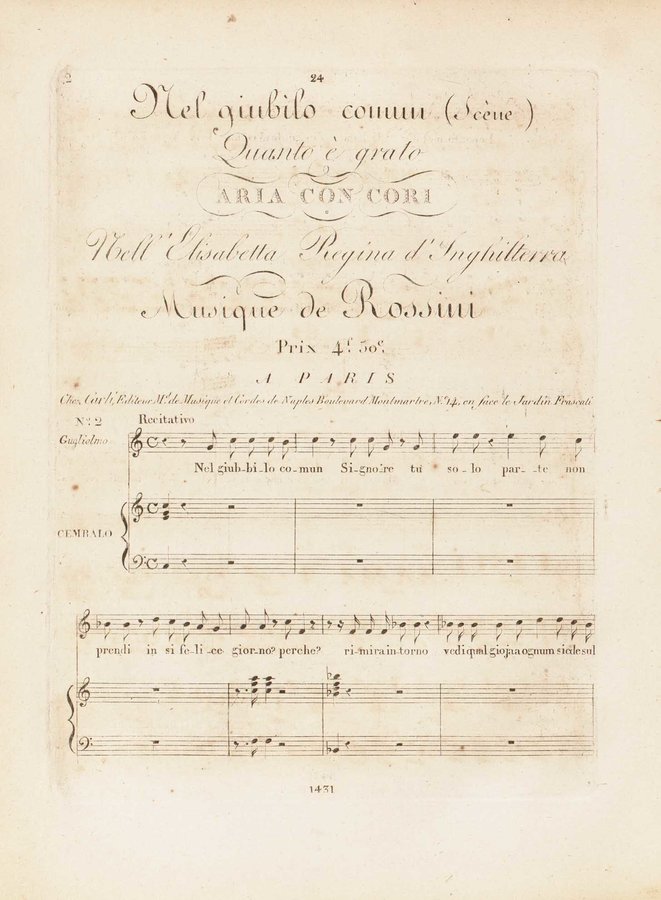 2
24
Nel giubilo comun (Scène)
Quanto è grato
ARIA CON CORI
Nell' Elisabetta Regina d'Inghilterra
Musique de Rossini
Prix 4f. 50c.
A PARIS
Chez Carli, Editeur Md. de Musique et Cordes de Naples Boulevard Montmartre, No. 14, en face le Jardin Frascati
No. 2
Recitativo
Guglielmo
Nel giub-bi-lo co-mun Si-gno-re tu so-lo par-te non
CEMBALO
prendi in si fe-li-ce gior-no? perche? ri-mira in torno vedi qual gioja a ognum side sul
1431